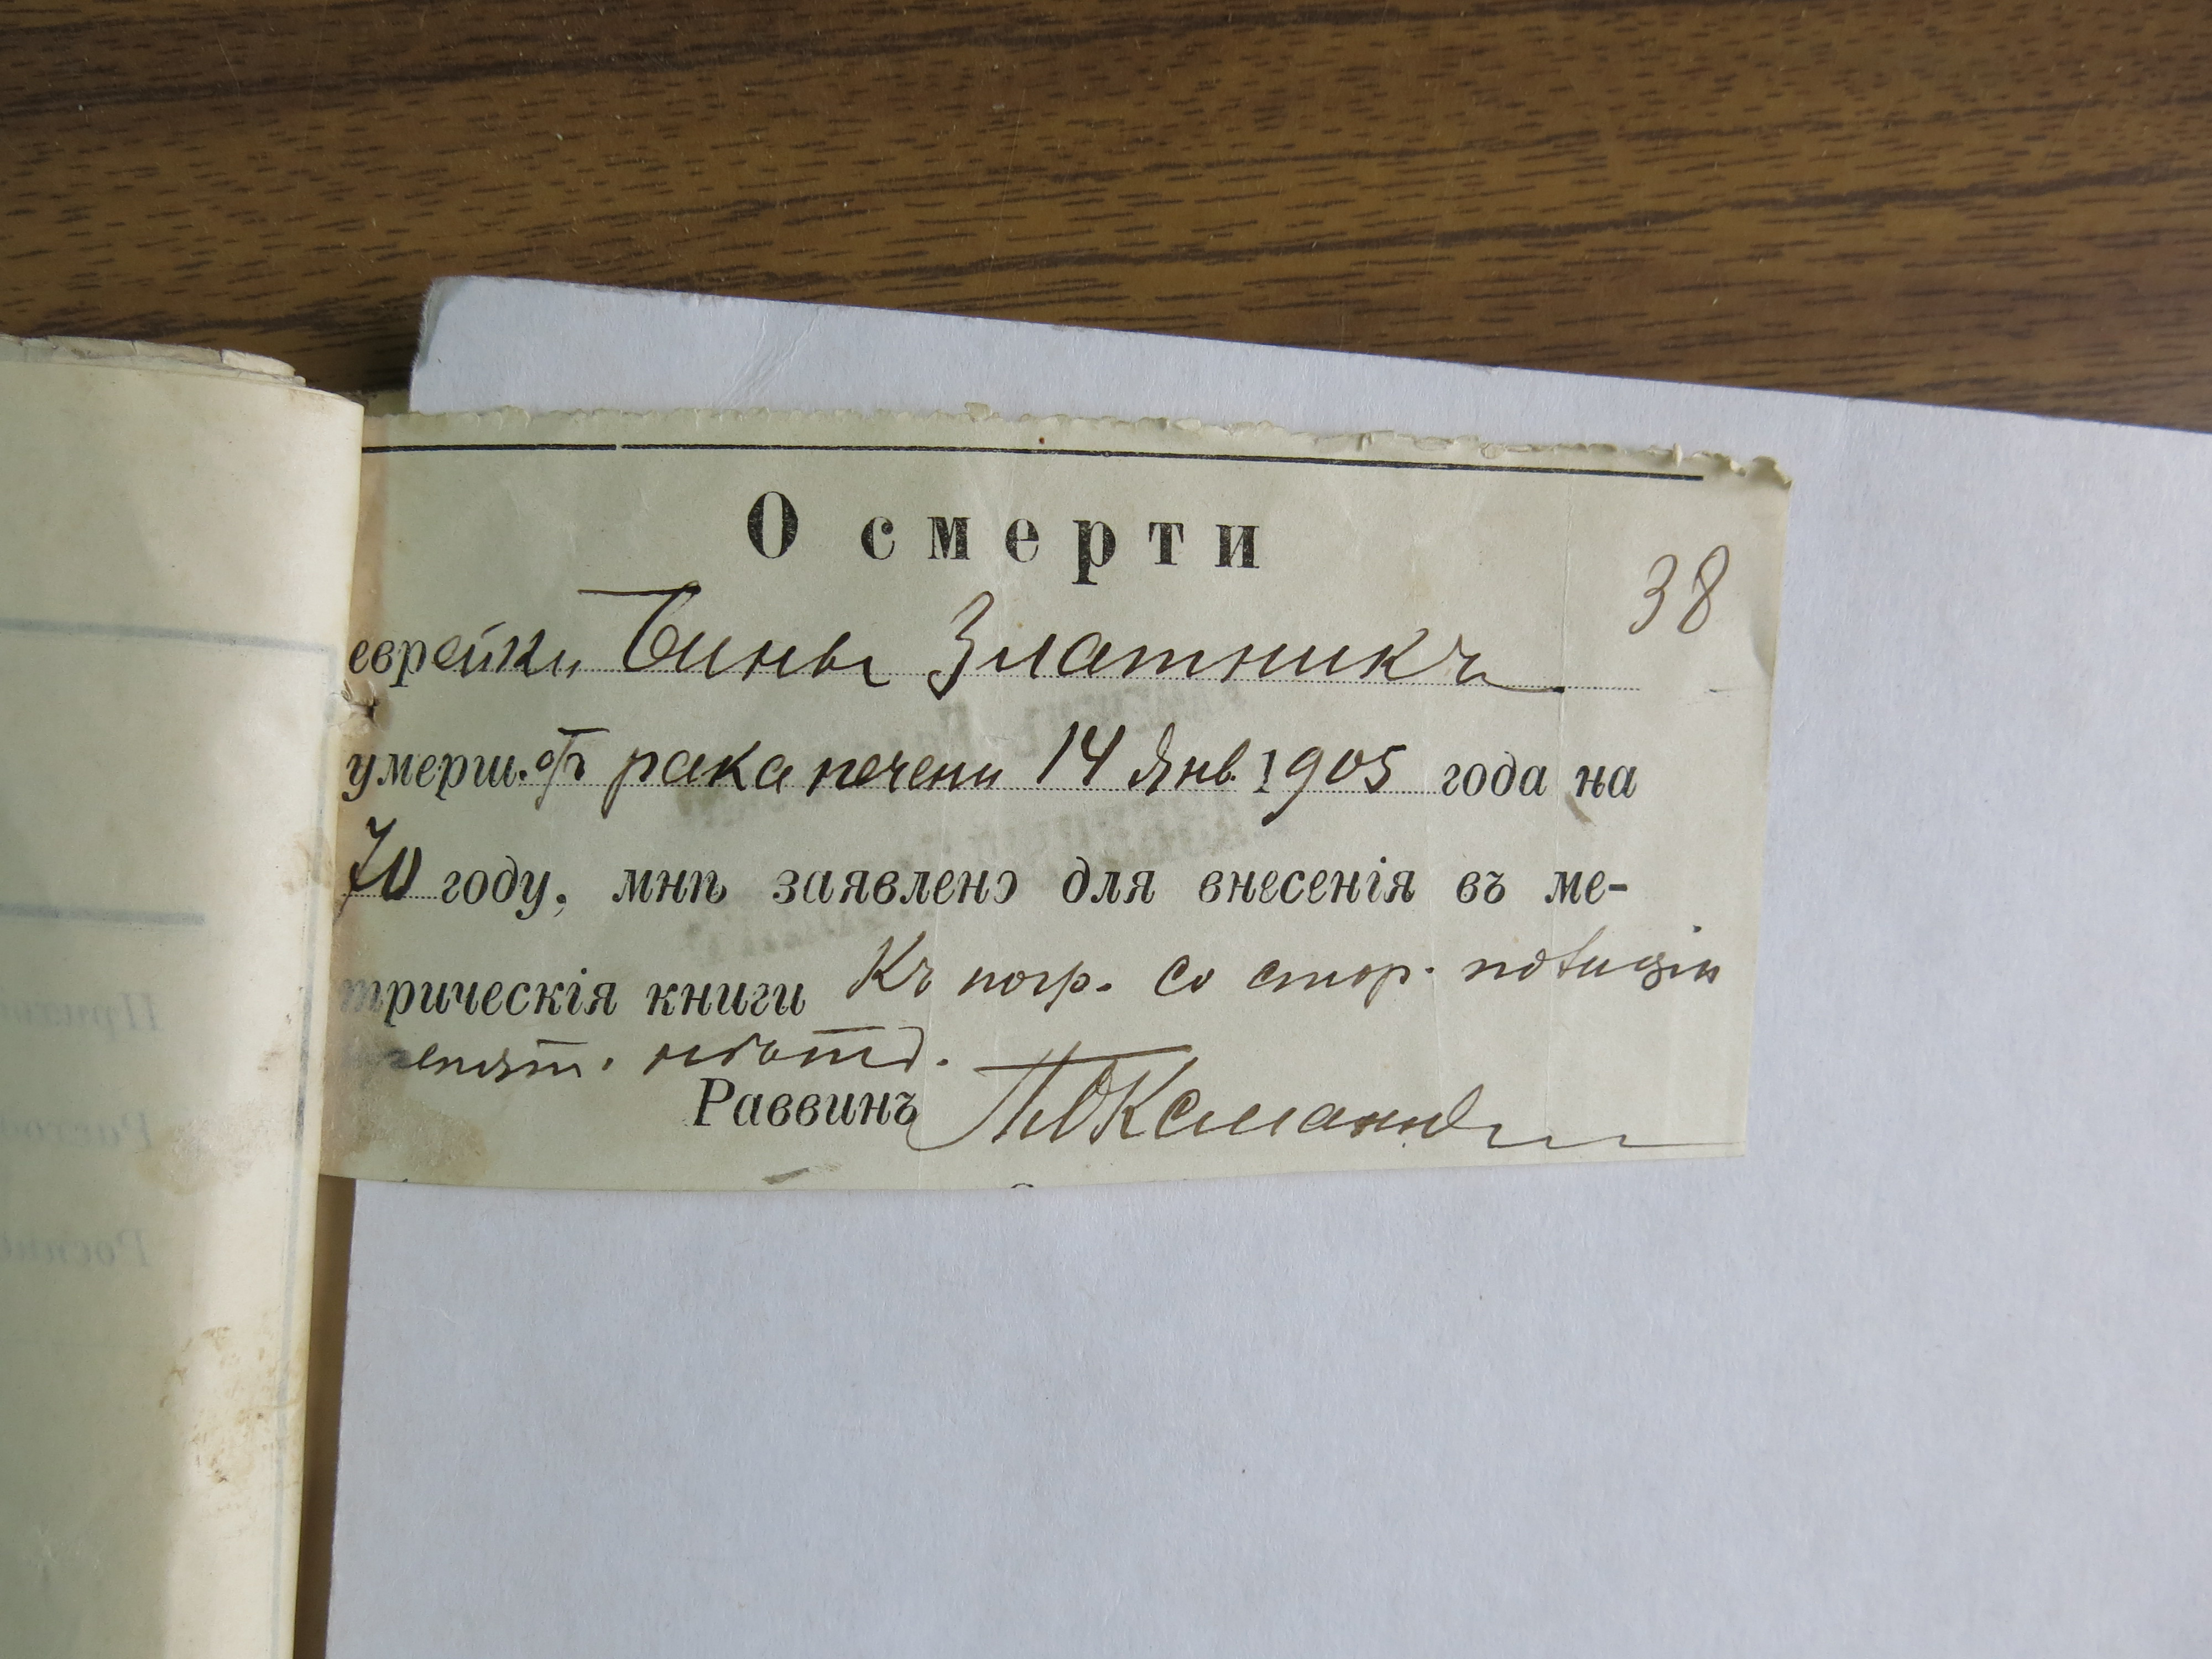 О смерти
38
еврейки Бины Златникъ
умерш. отъ рака печени 14 Янв. 1905 года на
70 году, мнѣ заявлено для внесенія въ ме-
трическія книги Къ погр. со стор. полиціи
препят. не
Раввинъ